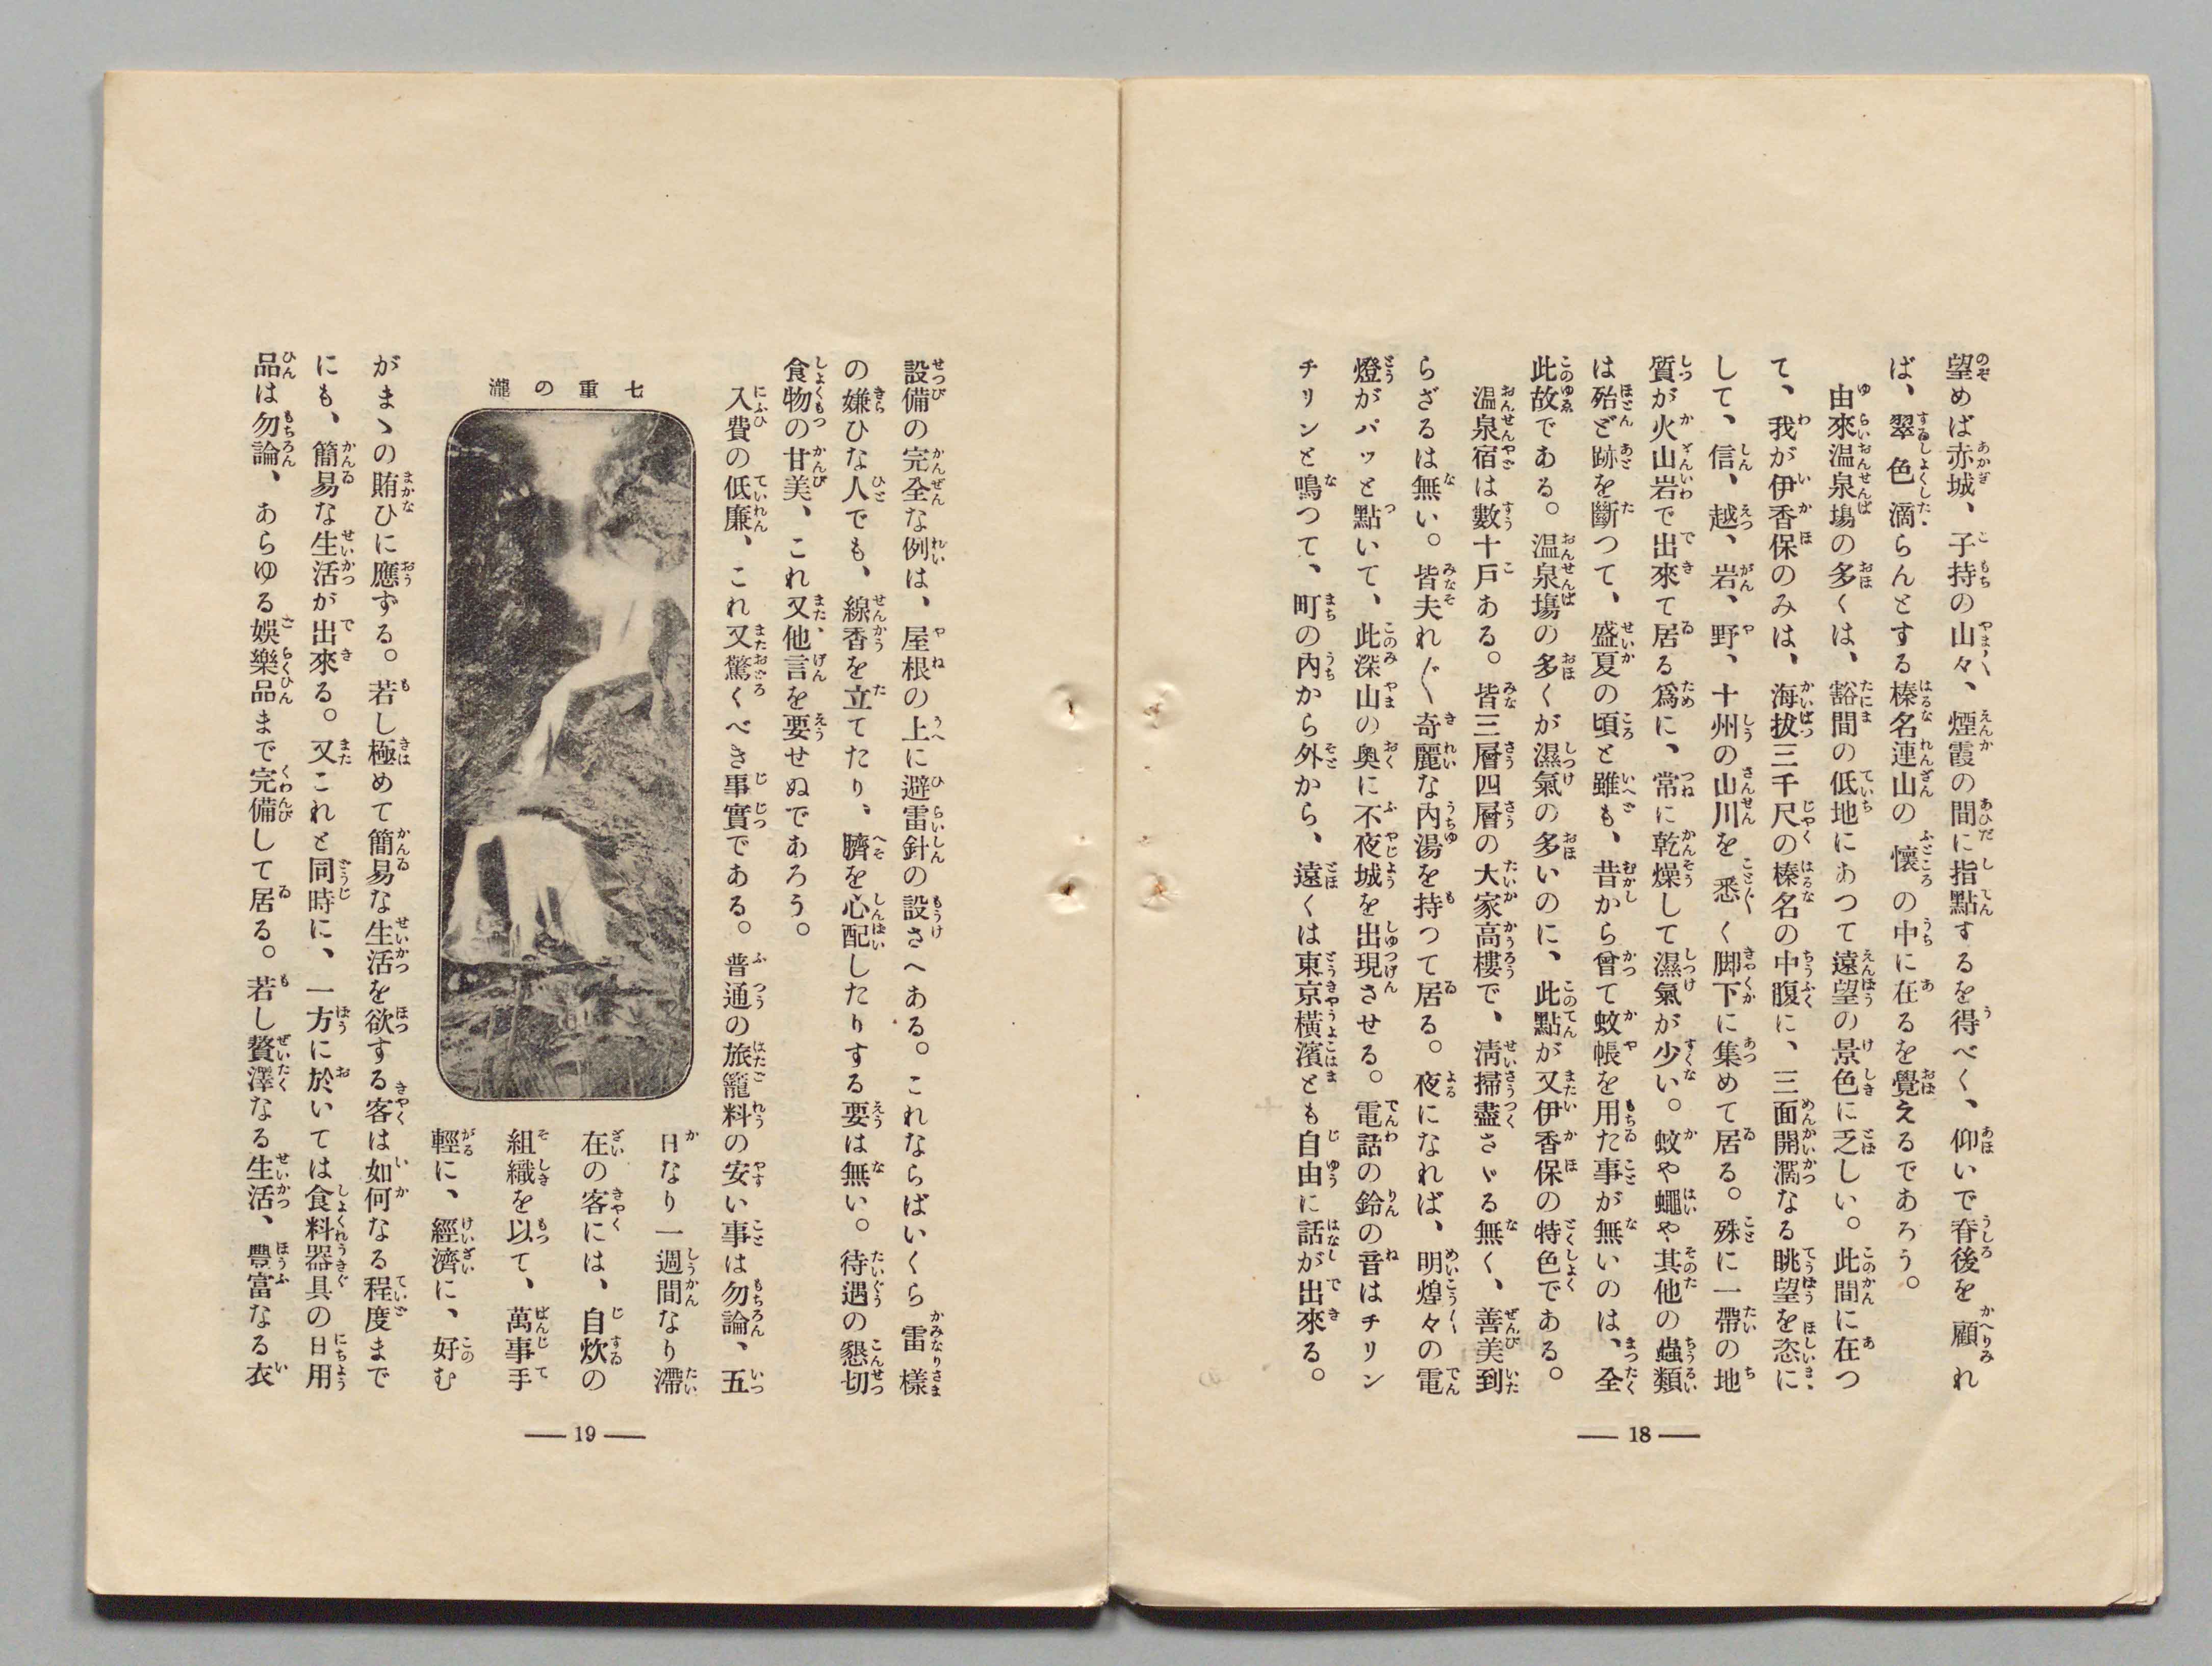 望めば赤城、子持の山々、煙霞の間に指點するを得べく、仰いで脊後を顧れ
ば、翠色滴らんとする榛名連山の懷の中に在るを覺えるであろう。
由來温泉塲の多くは、谿間の低地にあつて遠望の景色に乏しい。此間に在つ
て、我が伊香保のみは、海拔三千尺の榛名の中腹に、三面開濶なる眺望を恣に
して、信、越、岩、野、十州の山川を悉く脚下に集めて居る。殊に一帶の地
質が火山岩で出來て居る爲に、常に乾燥して濕氣が少い。蚊や蠅や其他の蟲類
は殆ど跡を斷つて、盛夏の頃と雖も、昔から曾て蚊帳を用ゐた事が無いのは、全
此故である。温泉塲の多くが濕氣の多いのに、此點が又伊香保の特色である。
温泉宿は數十戸ある。皆三層四層の大家高樓で、淸掃盡さゞる無く、善美到
らざるは無い。皆夫れ〴〵奇麗な內湯を持つて居る。夜になれば、明煌々の電
燈がパッと點いて、此深山の奧に不夜城を出現させる。電話の鈴の音はチリン
チリンと鳴つて、町の內から外から、遠くは東京橫濱とも自由に話が出來る。
— 18 —
設備の完全な例は、屋根の上に避雷針の設さへある。これならばいくら雷樣
の嫌ひな人でも、線香を立てたり、臍を心配したりする要は無い。待遇の懇切
食物の甘美、これ又他言を要せぬであろう。
入費の低廉、これ又驚くべき事實である。普通の旅籠料の安い事は勿論、五
日なり一週間なり滯
在の客には、自炊の
組織を以て、萬事手
輕に、經濟に、好む
七重の瀧
がまゝの賄ひに應ずる。若し極めて簡易な生活を欲する客は如何なる程度まで
にも、簡易な生活が出來る。又これと同時に、一方に於いては食料器具の日用
品は勿論、あらゆる娛樂品まで完備して居る。若し贅澤なる生活、豐富なる衣
— 19 —